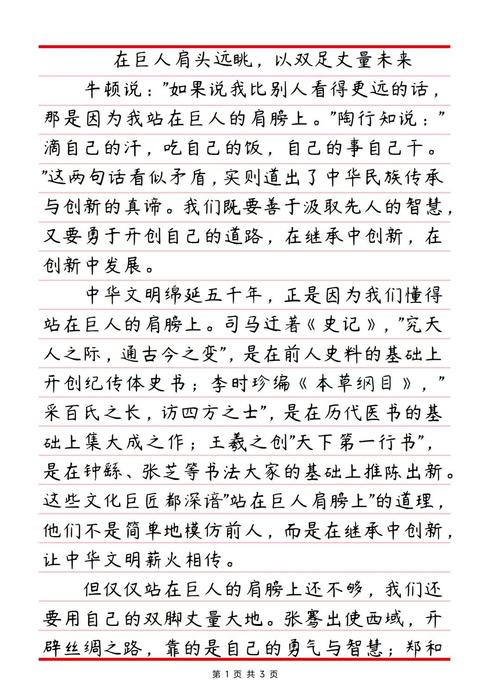 在巨人肩头远眺，以双足丈量未来
牛顿说："如果说我比别人看得更远的话，
那是因为我站在巨人的肩膀上。"陶行知说："
滴自己的汗，吃自己的饭，自己的事自己干。
"这两句话看似矛盾，实则道出了中华民族传承
与创新的真谛。我们既要善于汲取先人的智慧，
又要勇于开创自己的道路，在继承中创新，在
创新中发展。
中华文明绵延五千年，正是因为我们懂得
站在巨人的肩膀上。司马迁著《史记》，"究天
人之际，通古今之变"，是在前人史料的基础上
开创纪传体史书；李时珍编《本草纲目》，"
采百氏之长，访四方之士"，是在历代医书的基
础上集大成之作；王羲之创"天下第一行书"，
是在钟繇、张芝等书法大家的基础上推陈出新。
这些文化巨匠都深谙"站在巨人肩膀上"的道理，
他们不是简单地模仿前人，而是在继承中创新，
让中华文明薪火相传。
但仅仅站在巨人的肩膀上还不够，我们还
要用自己的双脚丈量大地。张骞出使西域，开
辟丝绸之路，靠的是自己的勇气与智慧；郑和
第 1 页 共 3 页